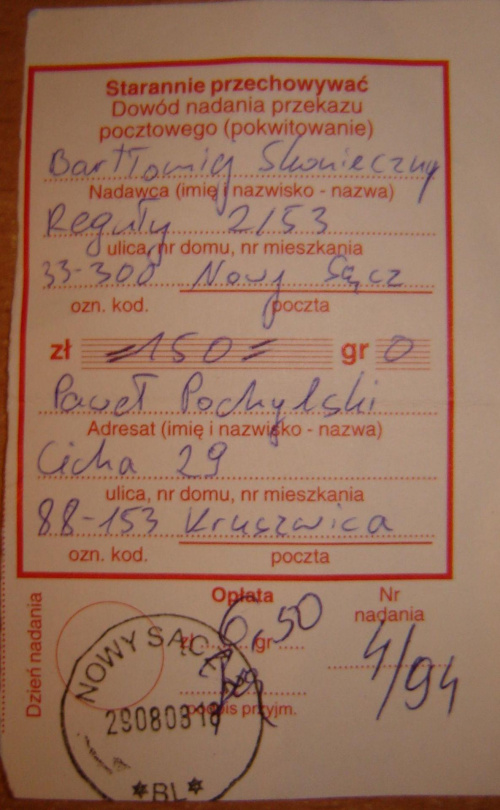 Starannie przechowywać
Dowód nadania przekazu
pocztowego (pokwitowanie)
Bartłomiej Skonieczny
Nadawca (imię i nazwisko - nazwa)
Reguły 2/53
ulica, nr domu, nr mieszkania
33-300 Nowy Sącz
ozn. kod. poczta
zł =150= gr 0
Paweł Pochylski
Adresat (imię i nazwisko - nazwa)
Cicha 29
ulica, nr domu, nr mieszkania
88-153 Kruszwica
ozn. kod. poczta
Opłata
Nr
nadania
6,50
zł gr
4/94
Dzień nadania
podpis przyjm.
NOWY SĄCZ
290808 18
*BL*